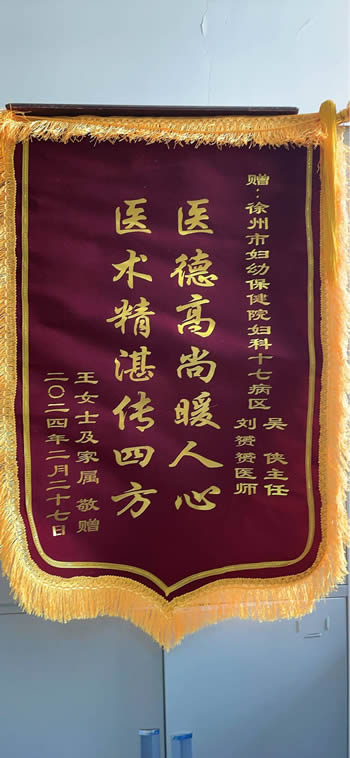 赠：徐州市妇幼保健院妇科十七病区
吴侠主任
刘赟赟医师
医德高尚暖人心
医术精湛传四方
王女士及家属 敬赠
二〇二四年二月二十七日